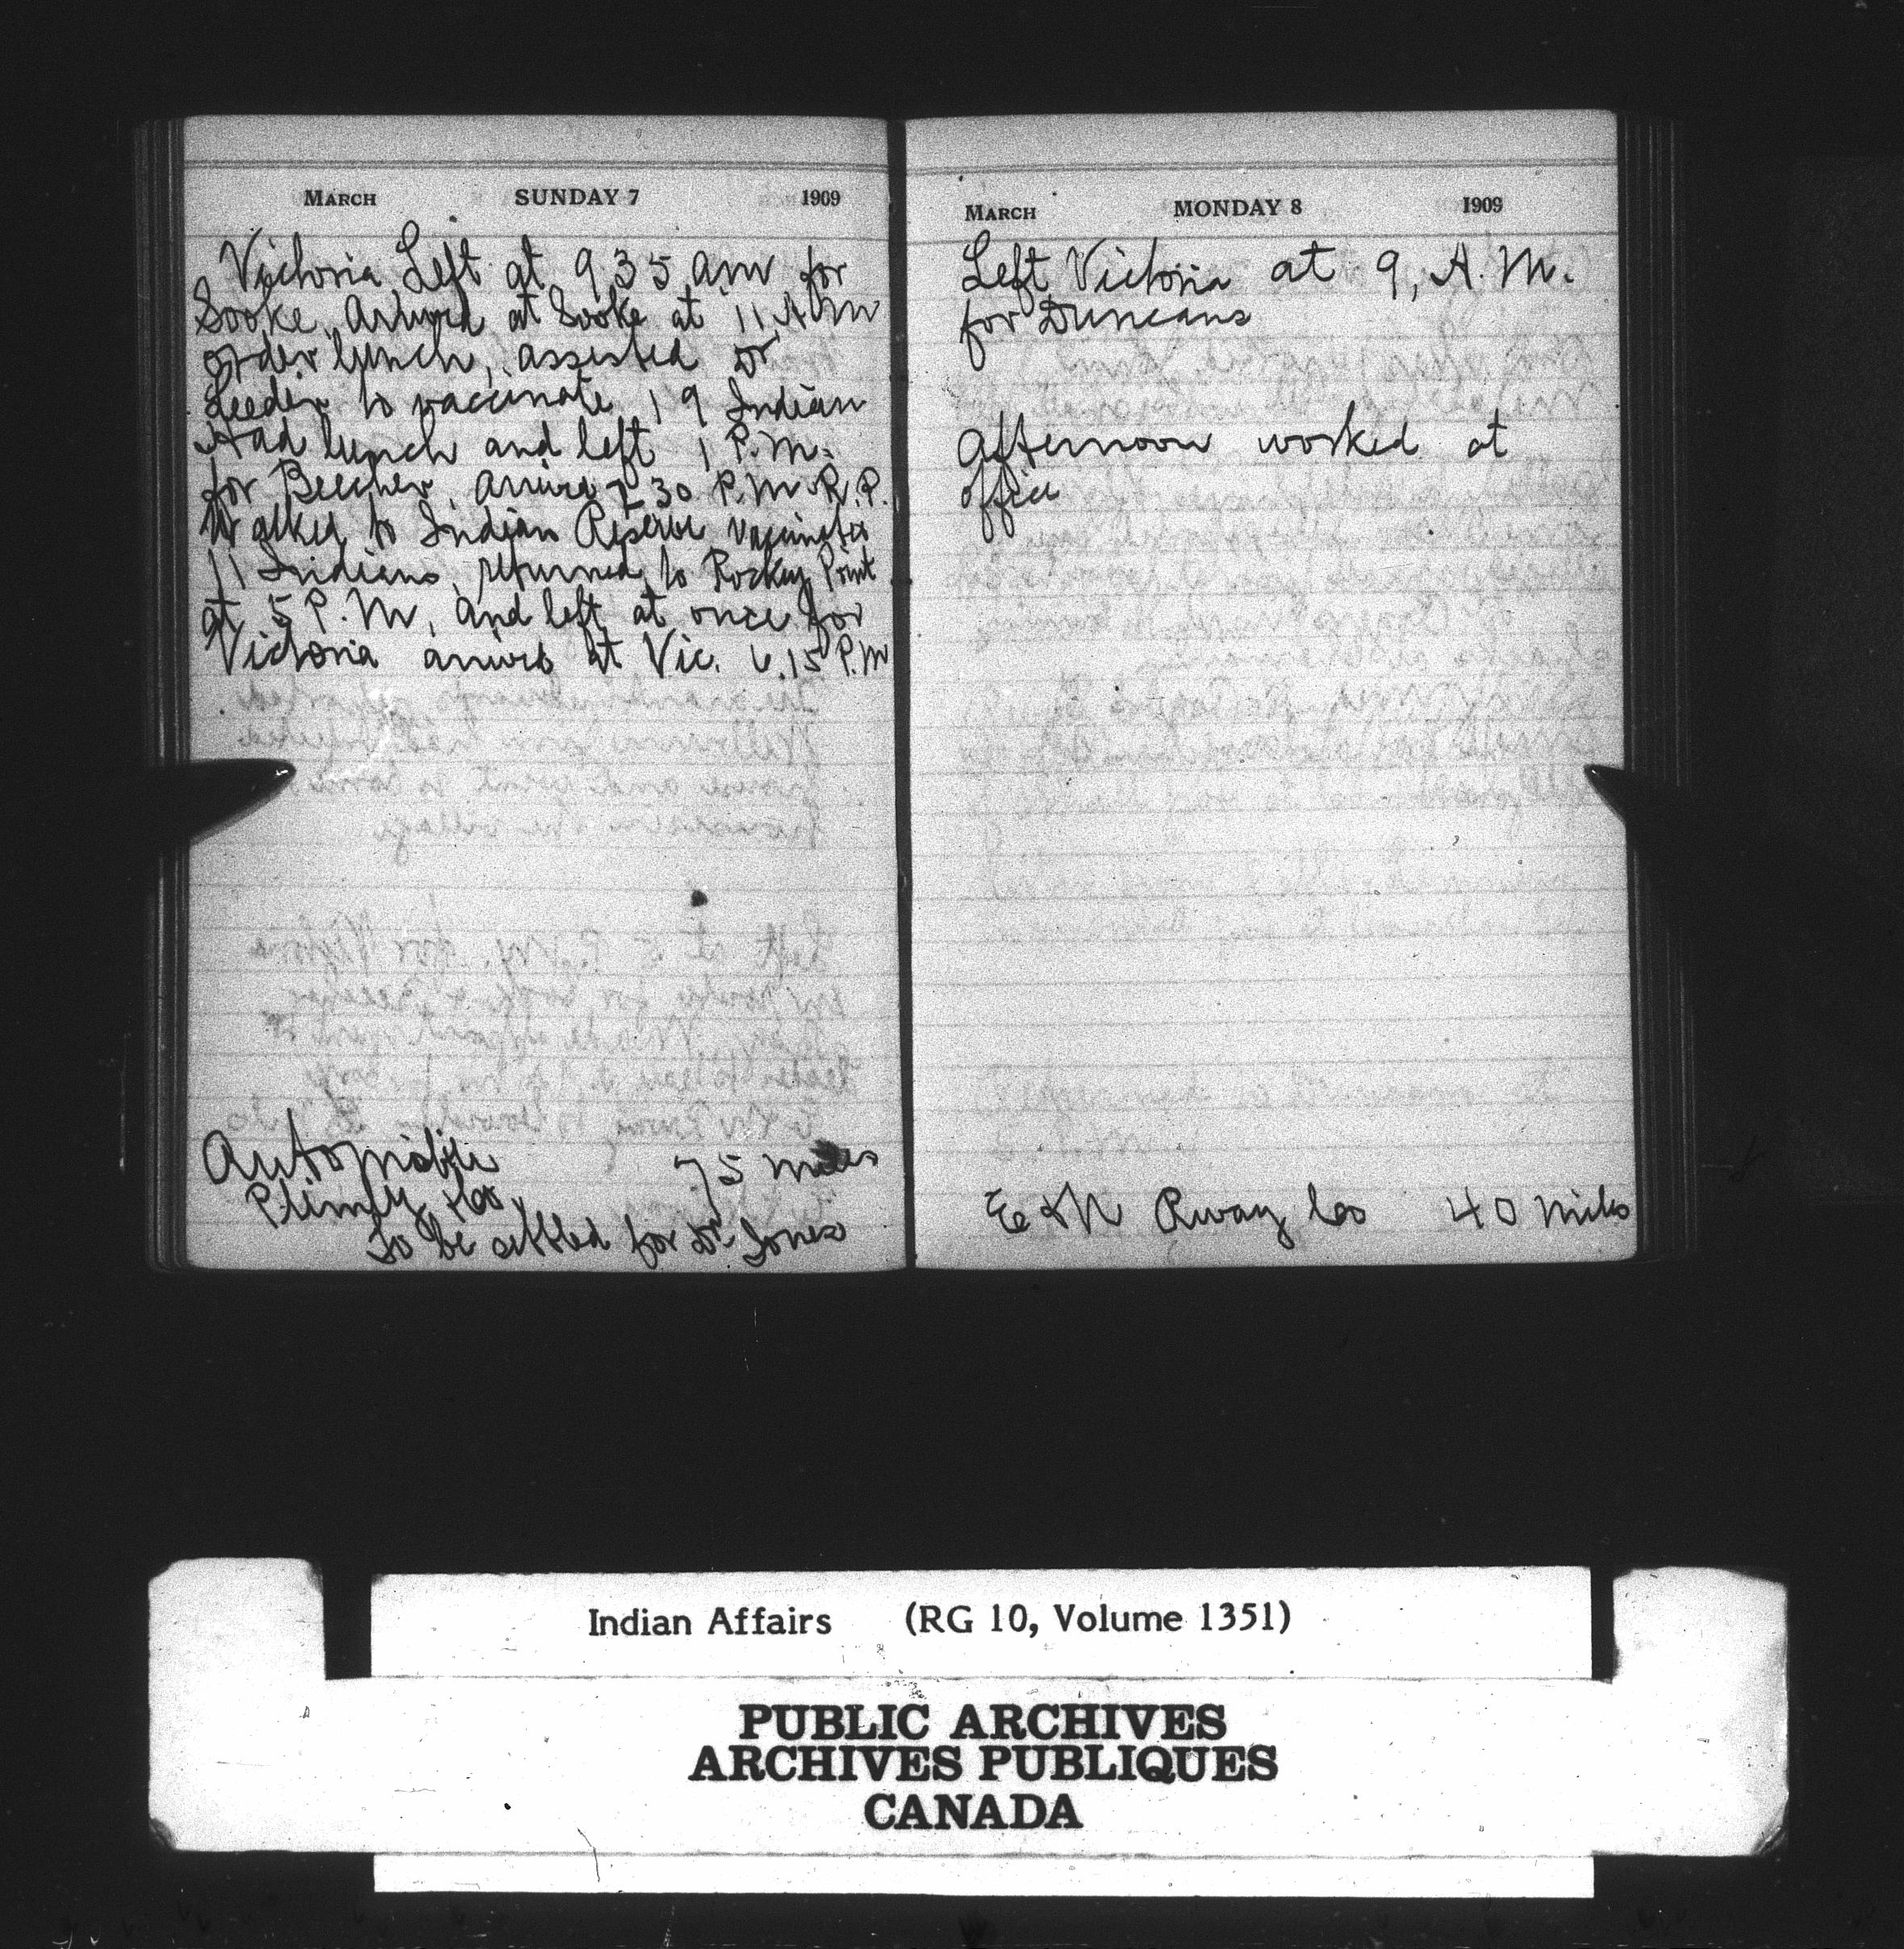 MARCH SUNDAY 7 1909
Victoria Left at 9 35 am for
Sooke, Arrived at Sooke at 11, A M
order lunch, assisted Dr
to vaccinate 19 Indian
Had lunch and left 1 P.M.
for Beecher, arrive 2 30 P.M. R.P.
Walked to Indian Reserve vaccinated
11 Indians, returned to Rocky Point
at 5 P.M, and left at once for
Victoria arrived at Vic. 6.15 P.M
Automobile 75 miles
Plimly
To be settled for Dr Jones
MARCH MONDAY 8 1909
Left Victoria at 9, A.M.
for Duncans
Afternoon worked at
office
E & N Rway Co 40 miles
Indian Affairs (RG 10, Volume 1351)
PUBLIC ARCHIVES
ARCHIVES PUBLIQUES
CANADA